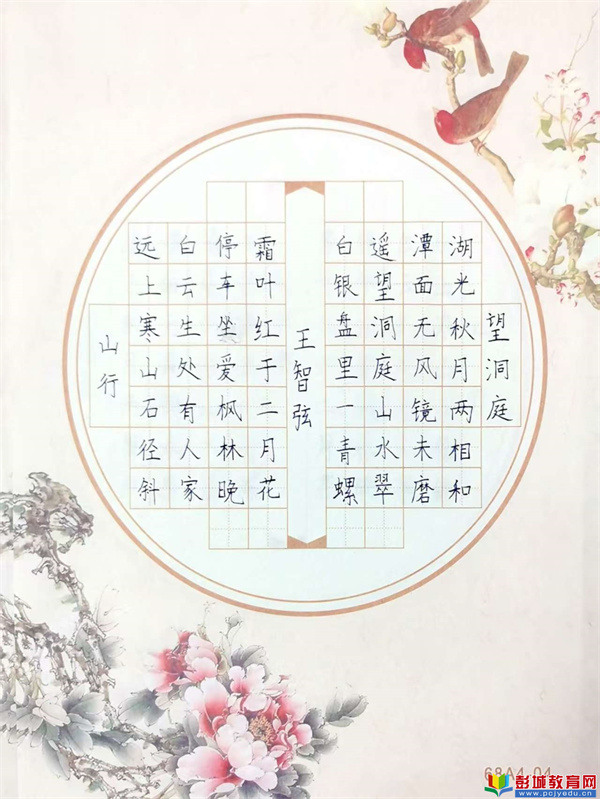 望洞庭
湖光秋月两相和
潭面无风镜未磨
遥望洞庭山水翠
白银盘里一青螺
王智弦
山行
远上寒山石径斜
白云生处有人家
停车坐爱枫林晚
霜叶红于二月花
68A4-04
彭城教育网
www.pcjyedu.cn